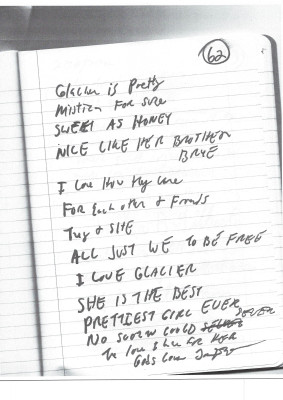 62
Glacier is Pretty
Mistica For sure
SWEET AS HONEY
NICE LIKE HER BROTHER
BRYE
I Love How they care
FOR Each other & Friends
They & SHE
ALL JUST WE TO BE FREE
I LOVE GLACIER
SHE IS THE BEST
PRETTIEST GIRL EVER
NO SCREW COULD SEVER
The love I have FOR HER
Gods Love